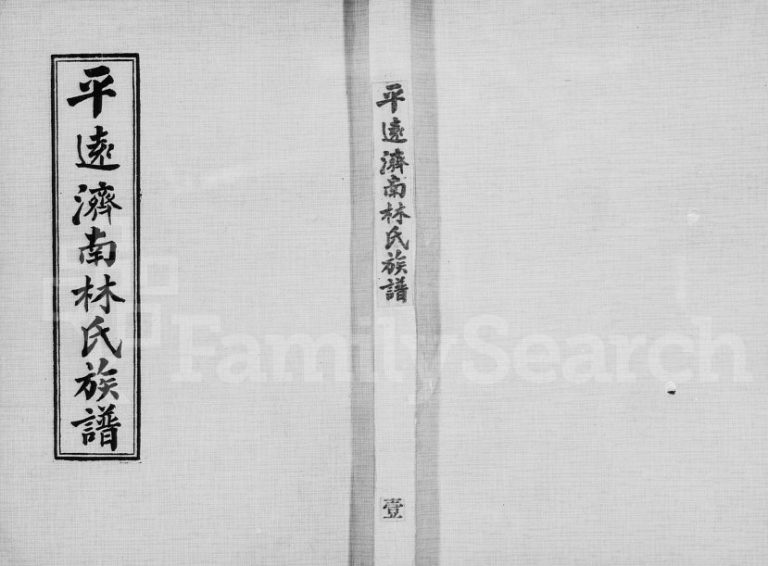 平遠濟南林氏族譜
平遠濟南林氏族譜
壹
FamilySearch